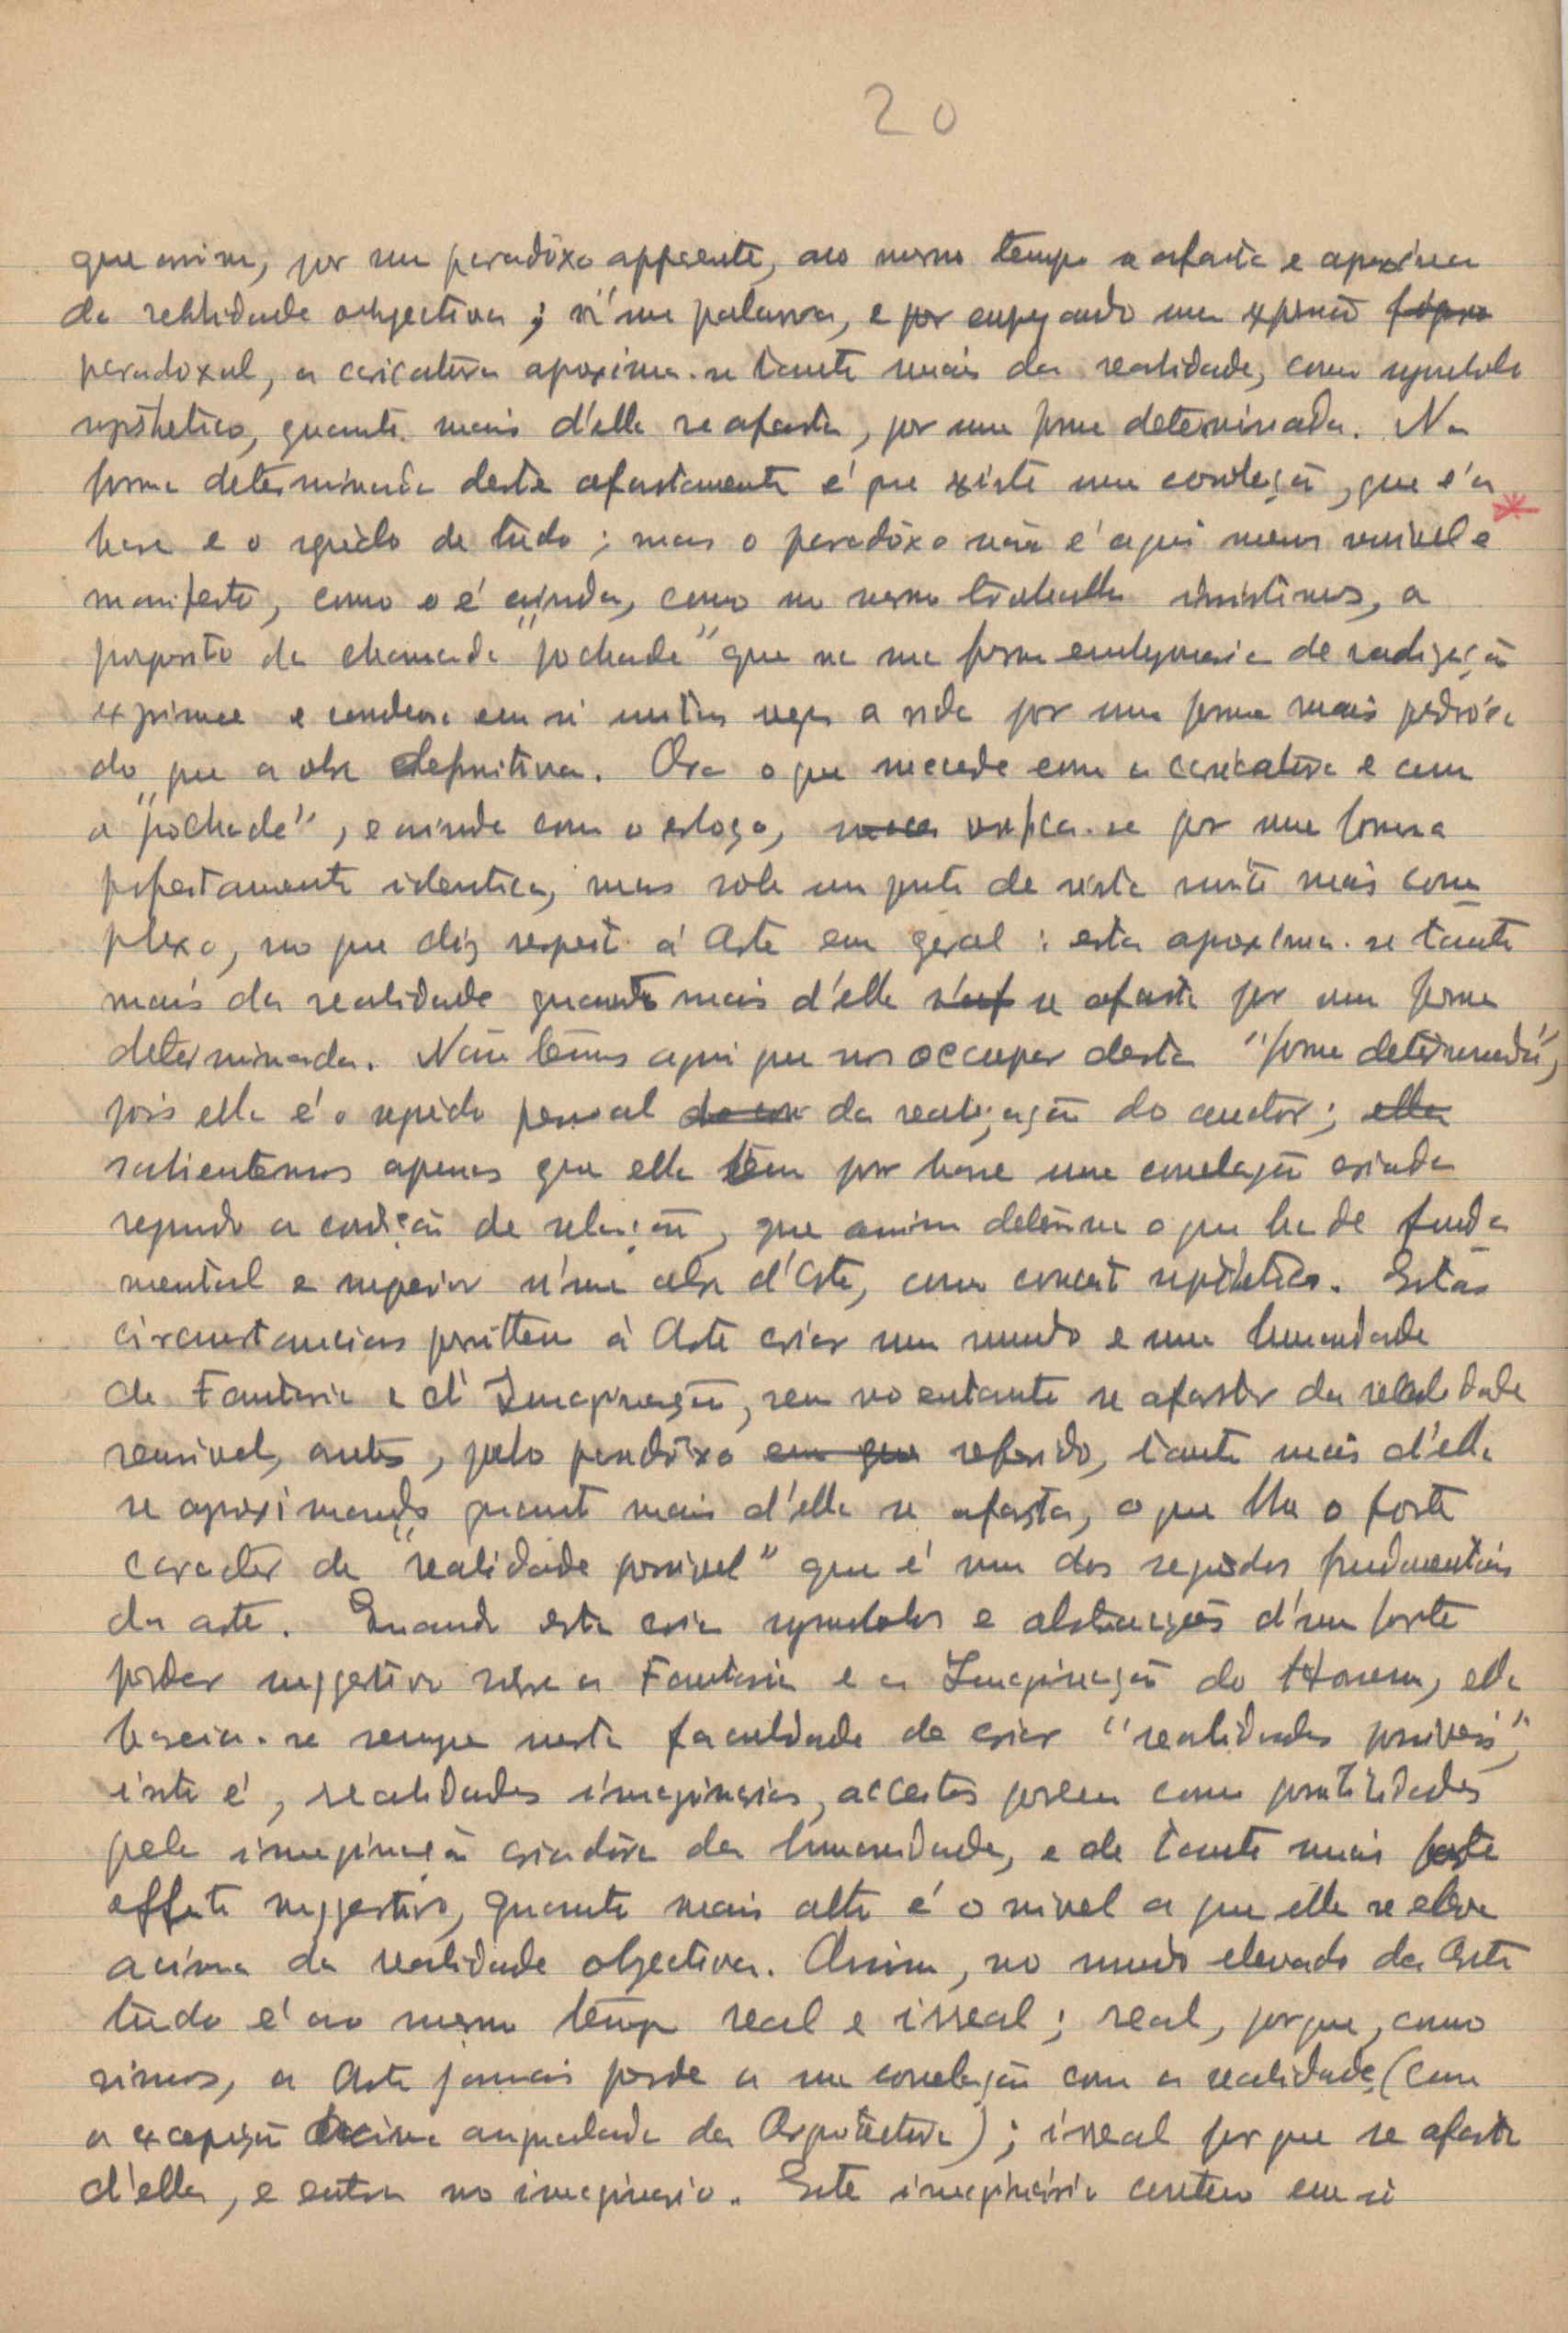 20
que assim, por um paradoxo apparente, ao mesmo tempo se afasta e aproxima
da realidade objectiva; n'uma palavra, e por empregando uma expressão
paradoxal, a caricatura aproxima-se tanto mais da realidade, como symbolo
synthetico, quanto mais d'ella se afasta, por uma forma determinada. Na
forma determinada deste afastamento é que existe uma correlação, que é a
base e o segredo de tudo; mas o paradoxo não é aqui menos sensivel e
manifesto, como o é ainda, como no mesmo trabalho insistimos, a
proposito da chamada "pochade" que na sua forma embryonaria de realização
exprime e condensa em si muitas vezes a vida por uma forma mais
do que a obra definitiva. Ora o que succede com a caricatura e com
a "pochade", e ainda com o esboço, verifica-se por uma forma
perfeitamente identica, mas sob um ponto de vista muito mais com
plexo, no que diz respeito á Arte em geral: esta aproxima-se tanto
mais da realidade quanto mais d'ella se afasta por uma forma
determinada. Não temos aqui que nos occupar desta "forma determinada",
pois ella é o segredo pessoal da realização do auctor; ella
salientemos apenas que ella tem por base uma correlação criada
segundo a condição de relação, que assim determina o que ha de funda
mental e superior n'uma obra d'Arte, como conceito synthetico. Estas
circumstancias permittem à Arte criar um mundo e uma humanidade
de Fantasia e d'Imaginação, sem no entanto se afastar da realidade
sensivel, antes, pelo paradoxo em que referido, tanto mais d'ella
se aproximando quanto mais d'ella se afasta, o que lhe o forte
caracter de "realidade possivel" que é um dos segredos fundamentais
da arte. Quando esta cria symbolos e abstracções d'um forte
poder suggestivo sobre a Fantasia e a Imaginação do Homem, ella
baseia-se sempre nesta faculdade de criar "realidades possiveis",
isto é, realidades imaginarias, acceites porem como possibilidades
pela imaginação criadora da humanidade, e de tanto mais forte
effeito suggestivo, quanto mais alto é o nivel a que ella se eleva
acima da realidade objectiva. Assim, no mundo elevado da Arte
tudo é ao mesmo tempo real e irreal; real, porque, como
vimos, a Arte jamais perde a sua correlação com a realidade (com
a excepção acima da Arquitectura); irreal porque se afasta
d'ella, e entra no imaginario. Este imaginário contem em si